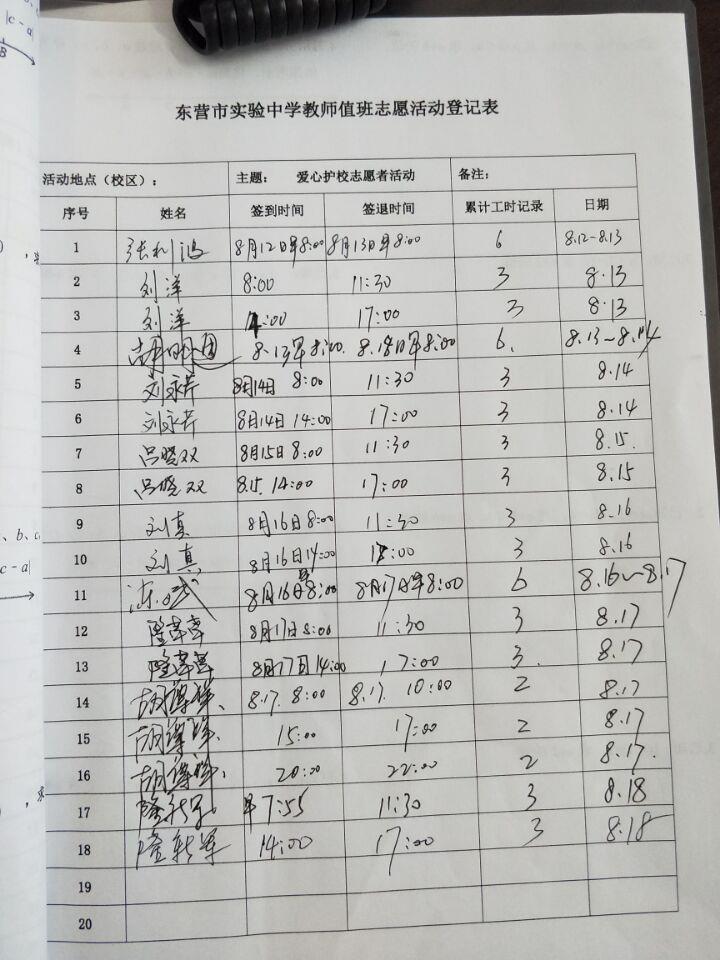 |c - a|
东营市实验中学教师值班志愿活动登记表
活动地点（校区）： 主题： 爱心护校志愿者活动 备注：
序号 姓名 签到时间 签退时间 累计工时记录 日期
1 张利 8月12日早8:00 8月13日早8:00 6 8.12~8.13
2 刘洋 8:00 11:30 3 8.13
3 刘洋 14:00 17:00 3 8.13
4 胡明 8.13早8:00. 8:00 6. 8.13~8.14
5 刘永芹 8月14日 8:00 11:30 3 8.14
6 刘永芹 8月14日 14:00 17:00 3 8.14
7 吕晓双 8月15日 8:00 11:30 3 8.15.
8 吕晓双 8.15. 14:00 17:00 3 8.15
9 刘真 8月16日 8:00 11:30 3 8.16
10 刘真 8月16日 14:00 17:00 3 8.16
11 8月16日早8:00 8月17日早8:00 6 8.16~8.17
12 隆 8月17日 8:00 11:30 3 8.17
13 隆 8月17日 14:00 17:00 3. 8.17
14 胡 8.17. 8:00 8.17. 10:00 2 8.17
15 胡 15:00 17:00 2 8.17
16 胡 20:00 22:00 2 8.17.
17 隆新军 早7:55 11:30 3 8.18
18 隆新军 14:00 17:00 3 8.18
19
20
、b、c
c - a|